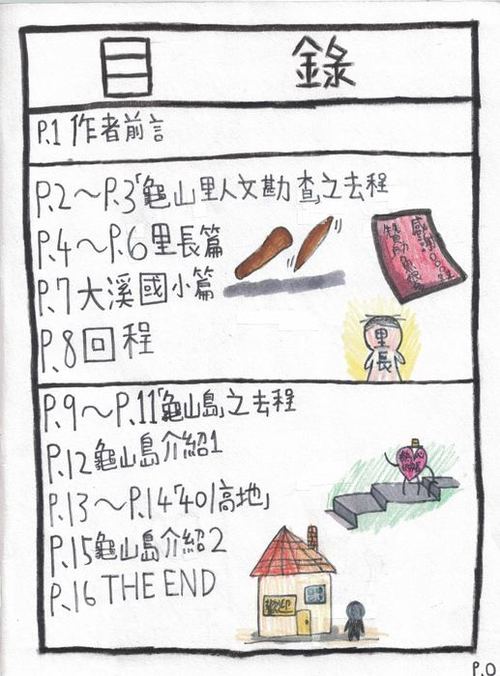 目錄
P.1 作者前言
P.2～P.3「龜山里人文勘查之去程
P.4～P.6里長篇
P.7大溪國小篇
P.8回程
里長
P.9～P.11「龜山島」之去程
P.12龜山島介紹1
P.13～P.14「401高地」
P.15龜山島介紹2
P.16 THE END
P.0